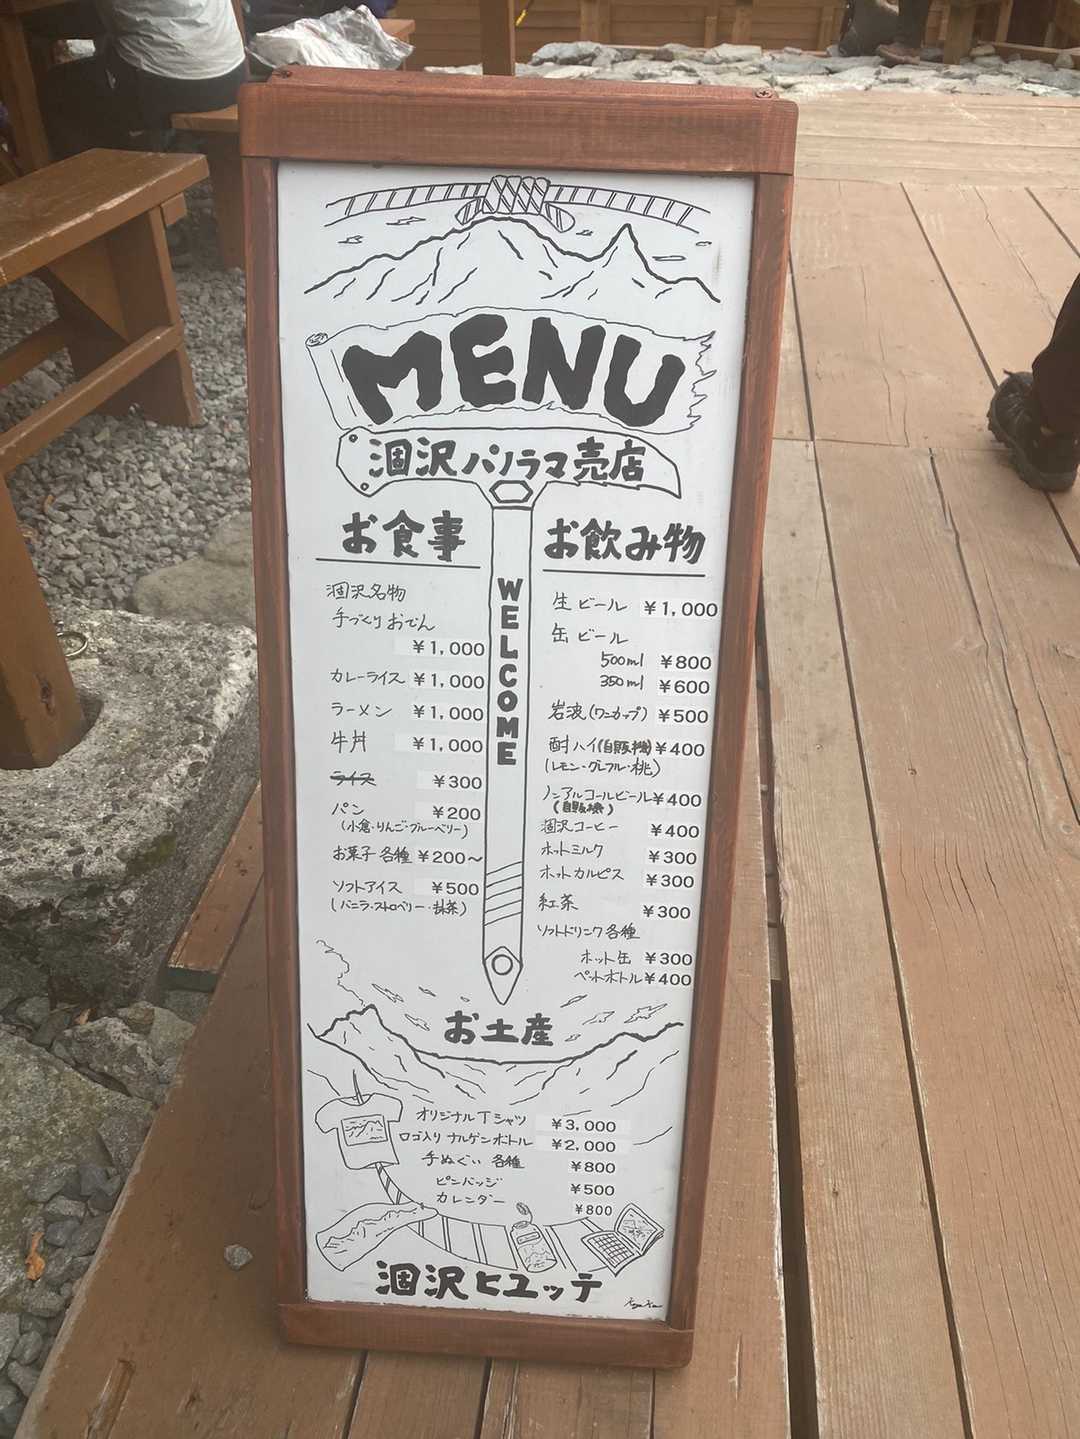 MENU
涸沢パノラマ売店
WELCOME
お食事
涸沢名物
手づくりおでん
¥1,000
カレーライス ¥1,000
ラーメン ¥1,000
牛丼 ¥1,000
ライス ¥300
パン ¥200
(小倉・りんご・ブルーベリー)
お菓子 各種 ¥200〜
ソフトアイス ¥500
(バニラ・ストロベリー・抹茶)
お飲み物
生ビール ¥1,000
缶ビール
500ml ¥800
350ml ¥600
岩波(ワンカップ) ¥500
酎ハイ(自販機) ¥400
(レモン・グレフル・桃)
ノンアルコールビール ¥400
(自販機)
涸沢コーヒー ¥400
ホットミルク ¥300
ホットカルピス ¥300
紅茶 ¥300
ソフトドリンク各種
ホット缶 ¥300
ペットボトル ¥400
お土産
オリジナルTシャツ ¥3,000
ロゴ入り ナルゲンボトル ¥2,000
手ぬぐい 各種 ¥800
ピンバッジ ¥500
カレンダー ¥800
涸沢ヒュッテ